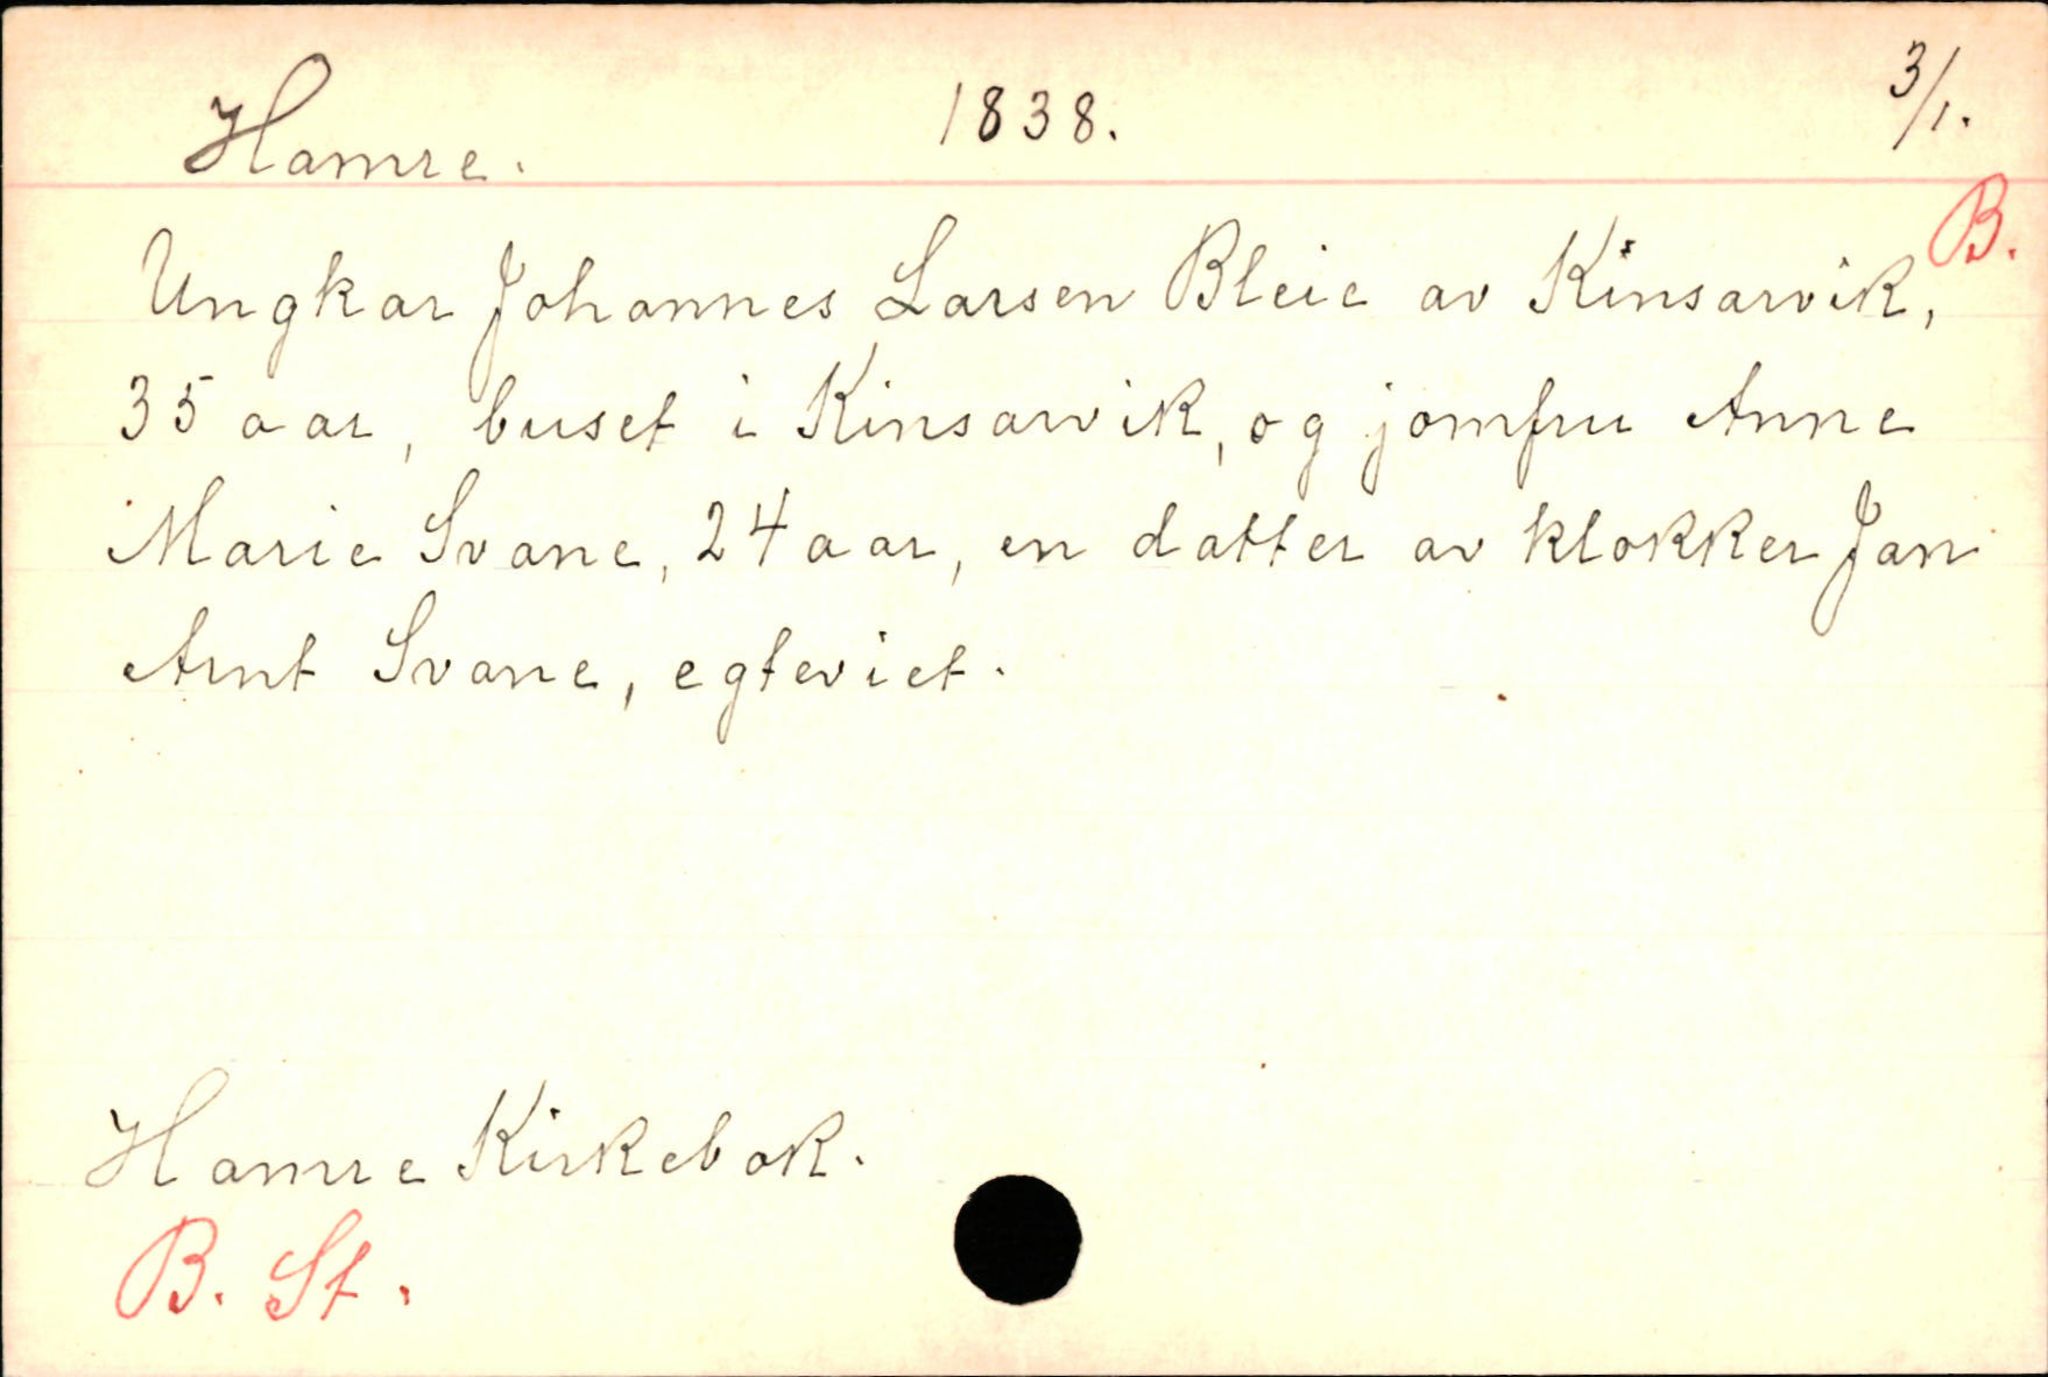 Hamre. 1838. 3/1.
B.
Ungkar Johannes Larsen Bleie av Kinsarvik,
35 aar, buset i Kinsarvik, og jomfru Anne
Marie Svane, 24 aar, en datter av klokker Jan
Arnt Svane, egteviet.
Hamre Kirkebok.
B. St.